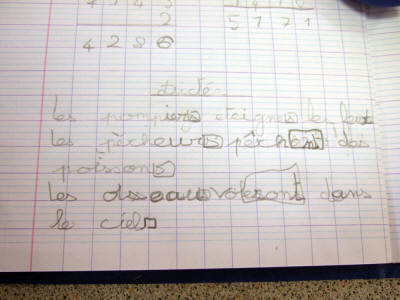 2
5171
4286
dictée
les pompiers éteignes les feux
les pêcheurs pêchent des
poissons
les oiseaux voleront dans
le ciel